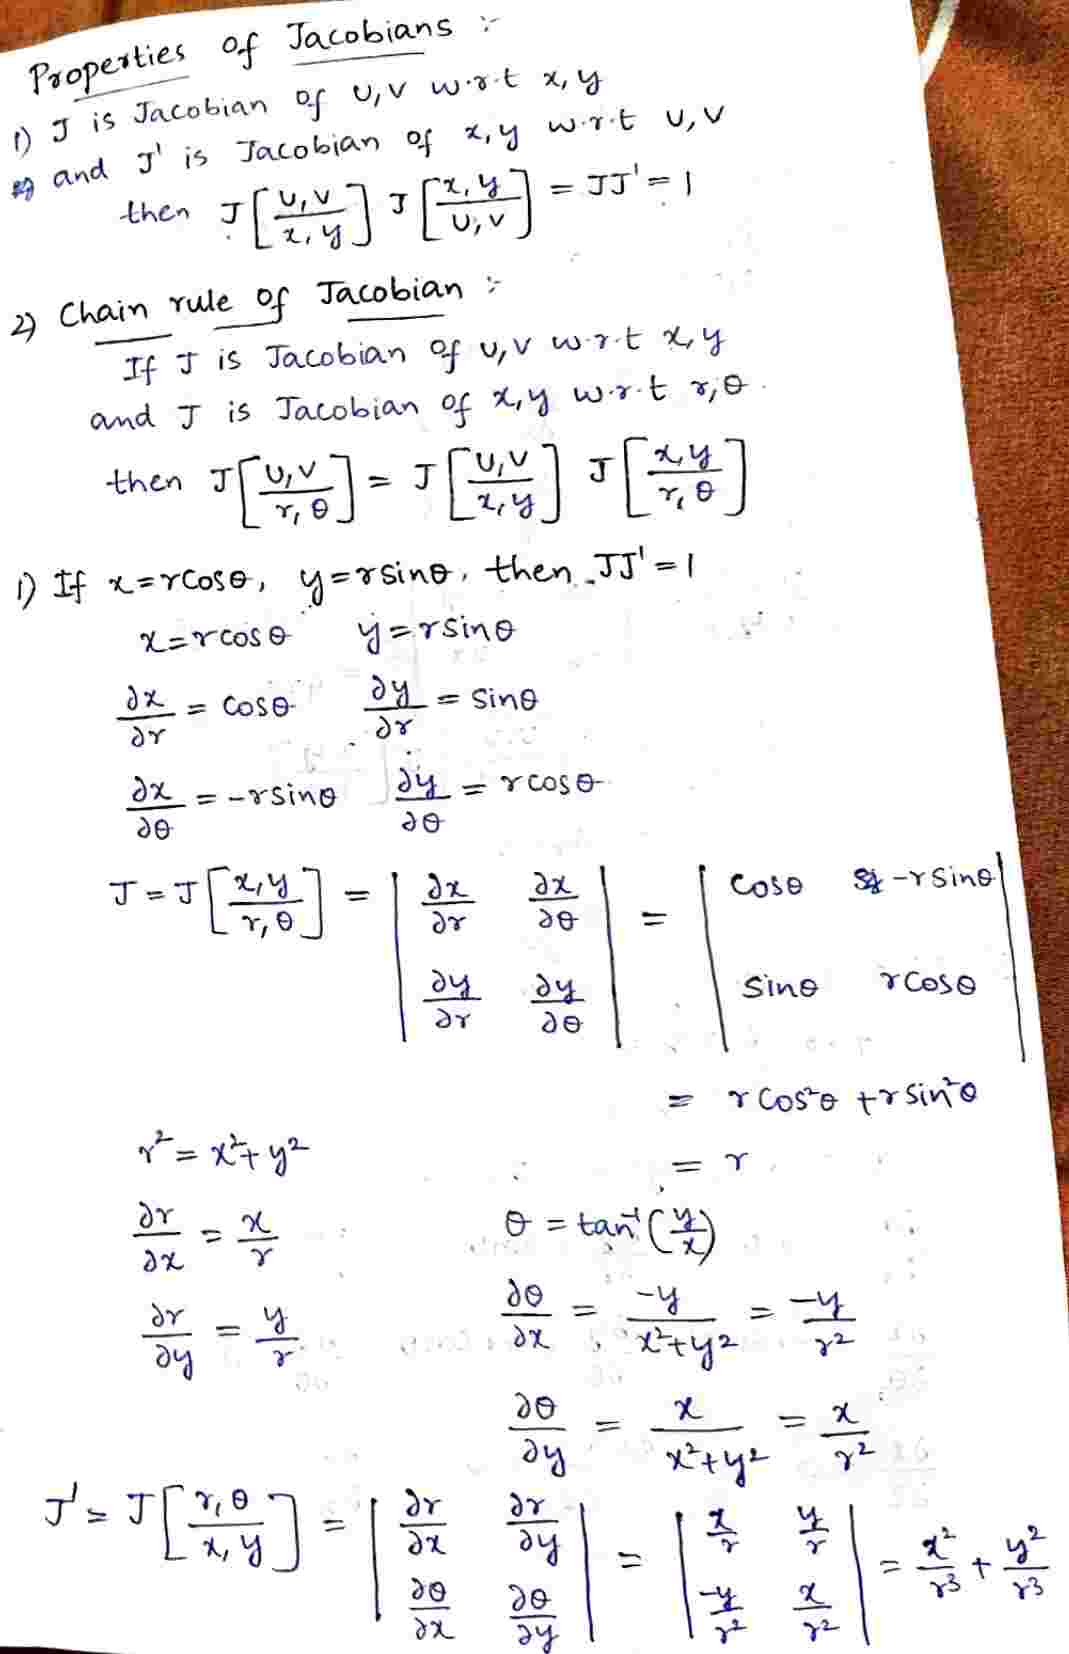 Properties of Jacobians :-
1) J is Jacobian of u,v w.r.t x,y
and J' is Jacobian of x,y w.r.t u,v
then J[u,v / x,y] J[x,y / u,v] = JJ' = 1
2) Chain rule of Jacobian :-
If J is Jacobian of u,v w.r.t x,y
and J is Jacobian of x,y w.r.t r,θ.
then J[u,v / r,θ] = J[u,v / x,y] J[x,y / r,θ]
1) If x=rcosθ, y=rsinθ, then JJ'=1
x=rcosθ y=rsinθ
∂x/∂r = cosθ ∂y/∂r = sinθ
∂x/∂θ = -rsinθ ∂y/∂θ = rcosθ
J = J[x,y / r,θ] = | ∂x/∂r ∂x/∂θ | = | cosθ -rsinθ |
| ∂y/∂r ∂y/∂θ | | sinθ rcosθ |
= rcos²θ + rsin²θ
r² = x²+y² = r
∂r/∂x = x/r θ = tan⁻¹(y/x)
∂r/∂y = y/r ∂θ/∂x = -y/x²+y² = -y/r²
∂θ/∂y = x/x²+y² = x/r²
J' = J[r,θ / x,y] = | ∂r/∂x ∂r/∂y | = | x/r y/r | = x²/r³ + y²/r³
| ∂θ/∂x ∂θ/∂y | | -y/r² x/r² |